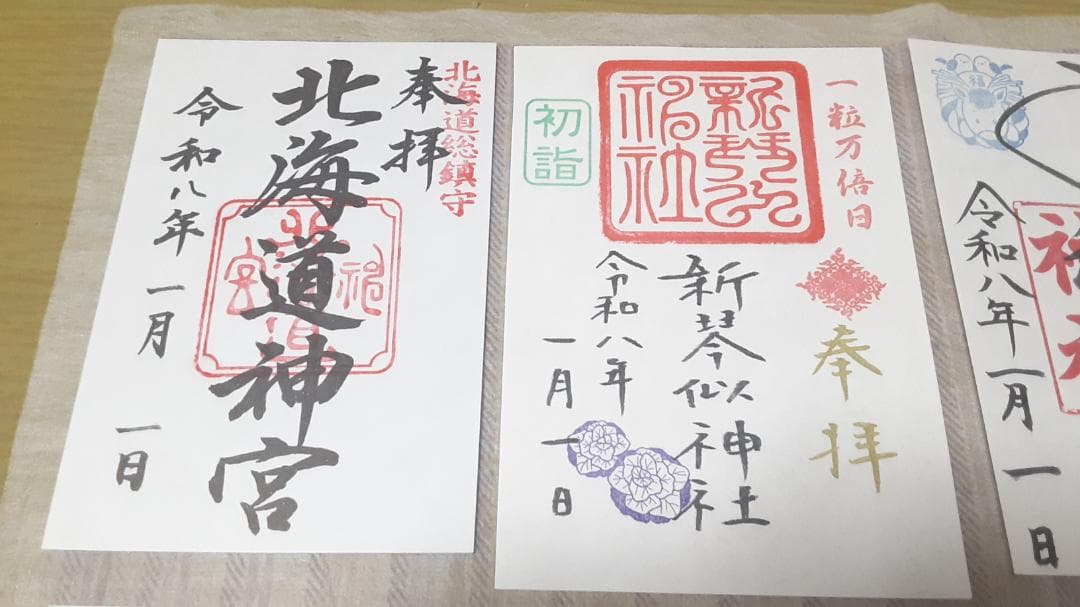 北海道総鎮守
奉拝
北海道神宮
令和八年 一月 一日
一粒万倍日
奉拝
新琴似神社
新琴似神社
令和八年
一月一日
初詣
福
令和八年一月一日